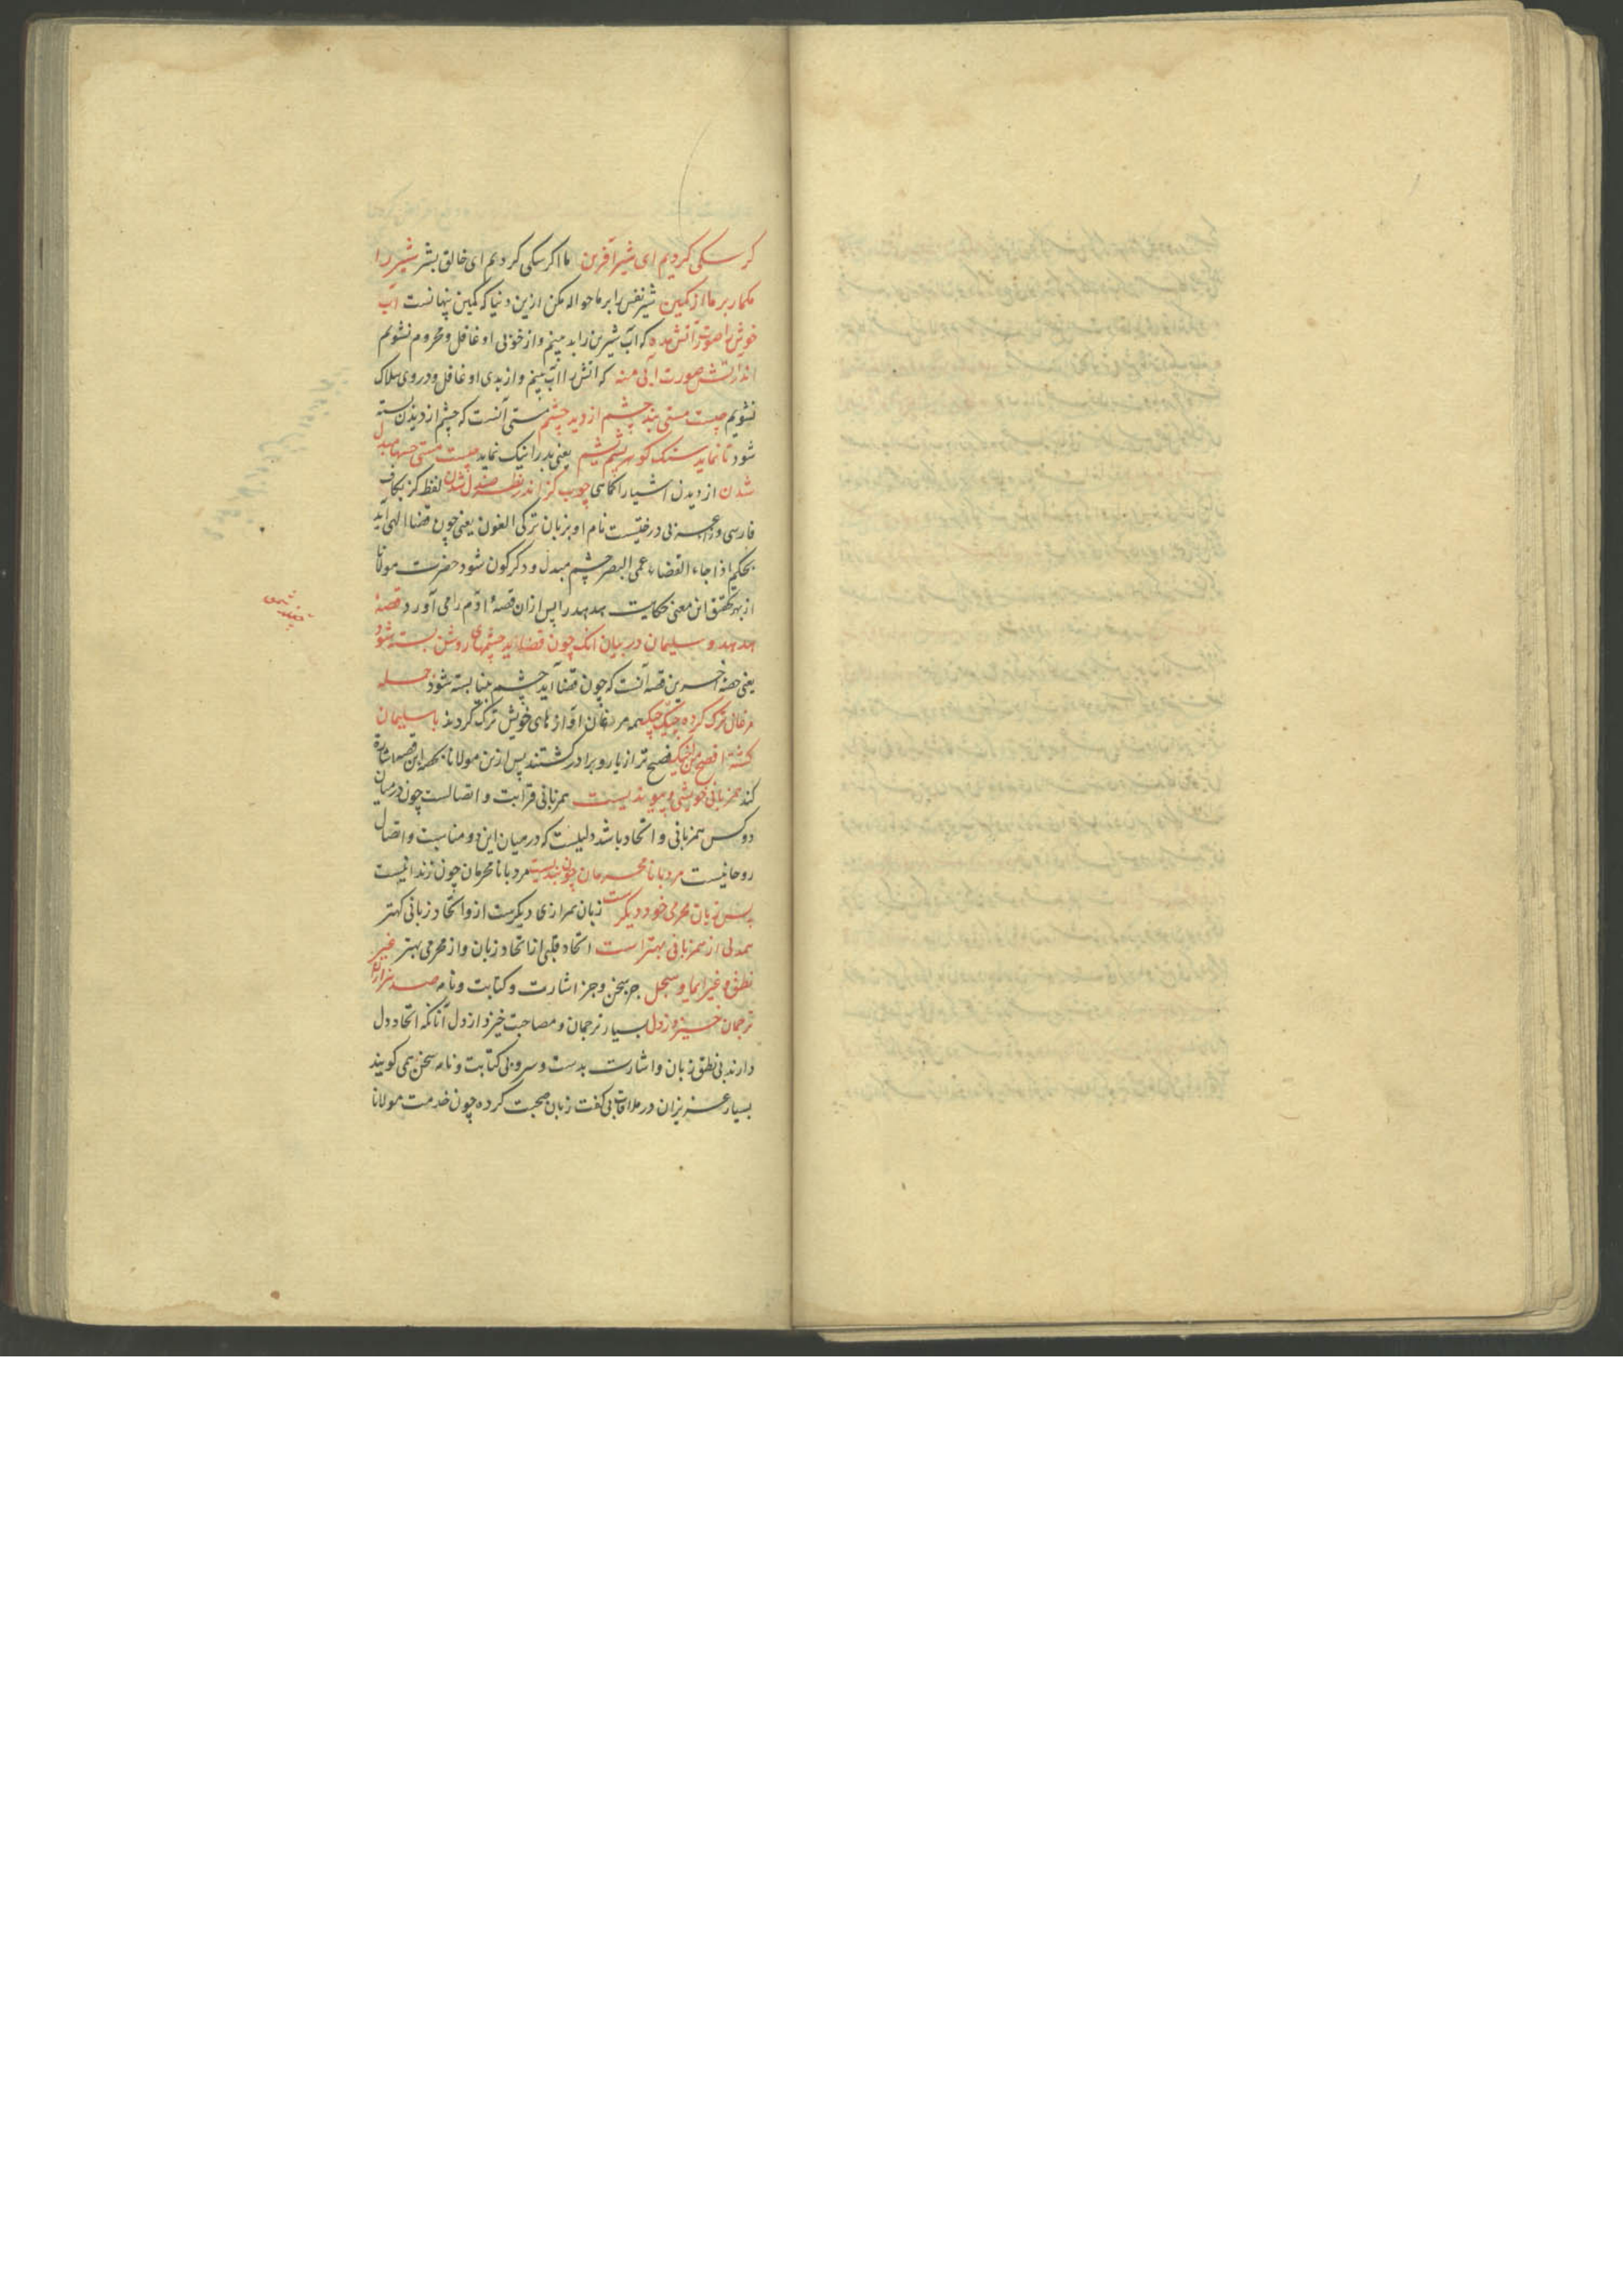 کر سکی کردیم ای شیر آفرین ما اکر سکی کردیم ای خالق بشر شیر را
مکمار بر ما از کمین شیر نفس را بر ما حواله مکن ازین دنیا که کمین پنهانست آب
خوش را صورت آتش مده که آب شیرین را بد بینم و از خوبی او غافل و محروم نشویم
اندر آتش صورت آبی منه که آتش را آب بینم و از بدی او غافل و در وی هلاک
نشویم چیست مستی بند چشم از دید چشم مستی آنست که چشم از دیدن بسته
شود تا نماید سنک کوهر پشم یشم یعنی بد را نیک نماید چیست مستی حسها مبدل
شدن از دیدن اشیا را کماهی چوب کز اندر نظر صندل شدن لفظ کز بکاف
فارسی و زا عربی درختیست نام او بزبان ترکی الغون یعنی چون قضا الهی آید
بحکم اذا جاء القضاء عمی البصر چشم مبدل و دکرکون شود حضرت مولانا
از بهر تحقیق این معنی حکایت هدهد را پس ازان قصهٔ آدم را می آورد قصهٔ
هدهد و سلیمان در بیان آنک چون قضا آید چشمهای روشن بسته شود
یعنی حصهٔ آخرین قصه آنست که چون قضا آید چشم بینا بسته شود جمله
مرغان ترک کرده جیک جیک همه مرغان آوازهای خویش ترک کردند با سلیمان
کشته افصح من اخیک فصیح تر از یار و برادر کشتند پس ازین مولانا بحصهٔ این قصه اشارة
کند همزبانی خویشی و پیوندیست همزبانی قرابت و اتصالست چون در میان
دو کس همزبانی و اتحاد باشد دلیلیست که در میان این دو مناسبت و اتصال
روحانیست مرد با نامحرمان چون بندیست مرد با نامحرمان چون زندانیست
پس زبان محرمی خود دیکرست زبان همرازی دیکرست از و اتحاد زبانی کهتر
همدلی از همزبانی بهترست اتحاد قلبی از اتحاد زبان و از محرمی بهتر غیر
نطق و غیر ایما و سجل جز سخن و جز اشارت و کتابت و نامه صد هزاران
ترجمان خیزد ز دل بسیار ترجمان و مصاحبت خیزد از دل آنانکه اتحاد دل
دارند بی نطق زبان و اشارت بدست و سر و بی کتابت و نامه سخن همی کویند
بسیار عزیزان در ملاقات بی کفت زبان صحبت کرده چون خدمت مولانا